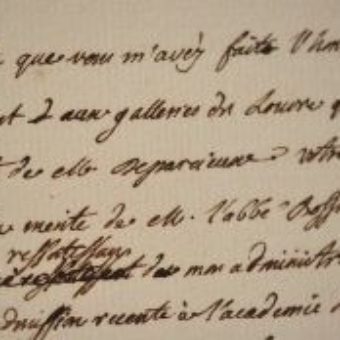 que vous m'avéz faite l'hon
et 2 aux galleries du Louvre q
de M. Deparcieux votre
mente de M. l'abbé Boss
ressortissan
de mon administr
dmission recente à l'academie d